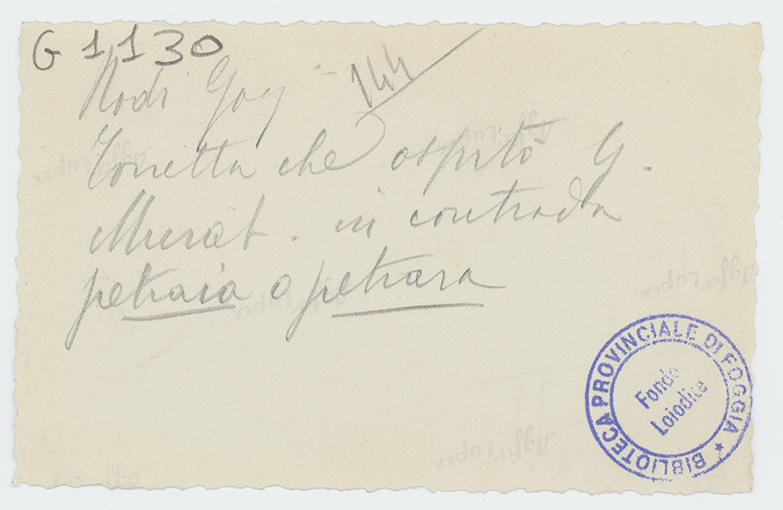 G 1130
144
Rodi Garg
Torretta che ospitò G.
Murat. in contrada
petraia o petrara
BIBLIOTECA PROVINCIALE DI FOGGIA
Fondo
Loiodice
Agfa Lupex
Agfa Lupex
Agfa Lupex
Agfa Lupex
Agfa Lupex